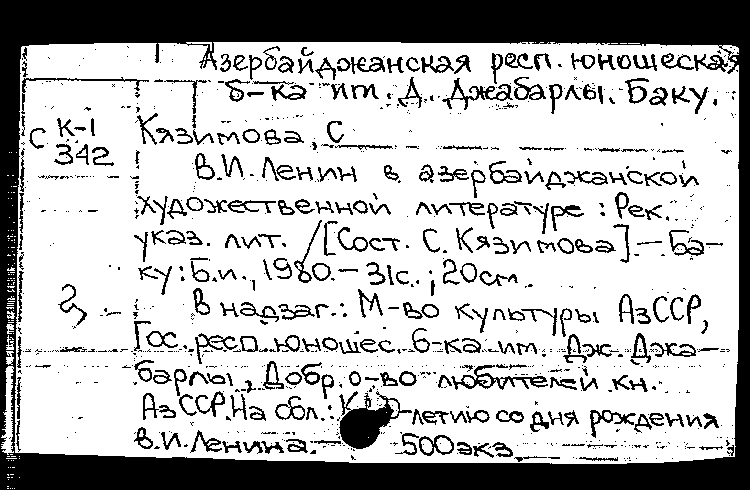 Азербайджанская респ. юношеская
б-ка им. Д. Джабарлы. Баку.
С К-1
342
Кязимова, С
В.И. Ленин в азербайджанской
художественной литературе : Рек.
указ. лит. / [Сост. С. Кязимова]. — Ба-
ку : Б.и., 1980. – 31с. ; 20см.
В надзаг.: М-во культуры АзССР,
Гос. респ. юношес. б-ка им. Дж. Джа-
барлы, Добр. о-во любителей кн.
АзССР. На обл.: К -летию со дня рождения
В.И. Ленина. — 500экз.